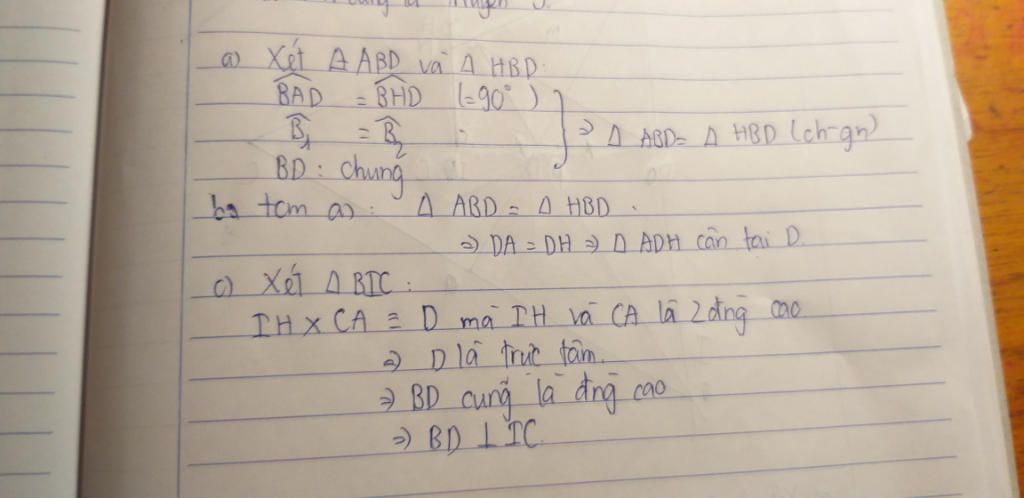 a) Xét Δ ABD và Δ HBD:
BAD = BHD (=90°)
B₁ = B₂ ⇒ Δ ABD = Δ HBD (ch-gn)
BD : chung
tcm a): Δ ABD = Δ HBD.
⇒ DA = DH ⇒ Δ ADH cân tại D.
c) Xét Δ BIC:
IH X CA ≡ D mà IH và CA là 2 đng cao
⇒ D là trực tâm.
⇒ BD cũng là đng cao
⇒ BD ⊥ IC